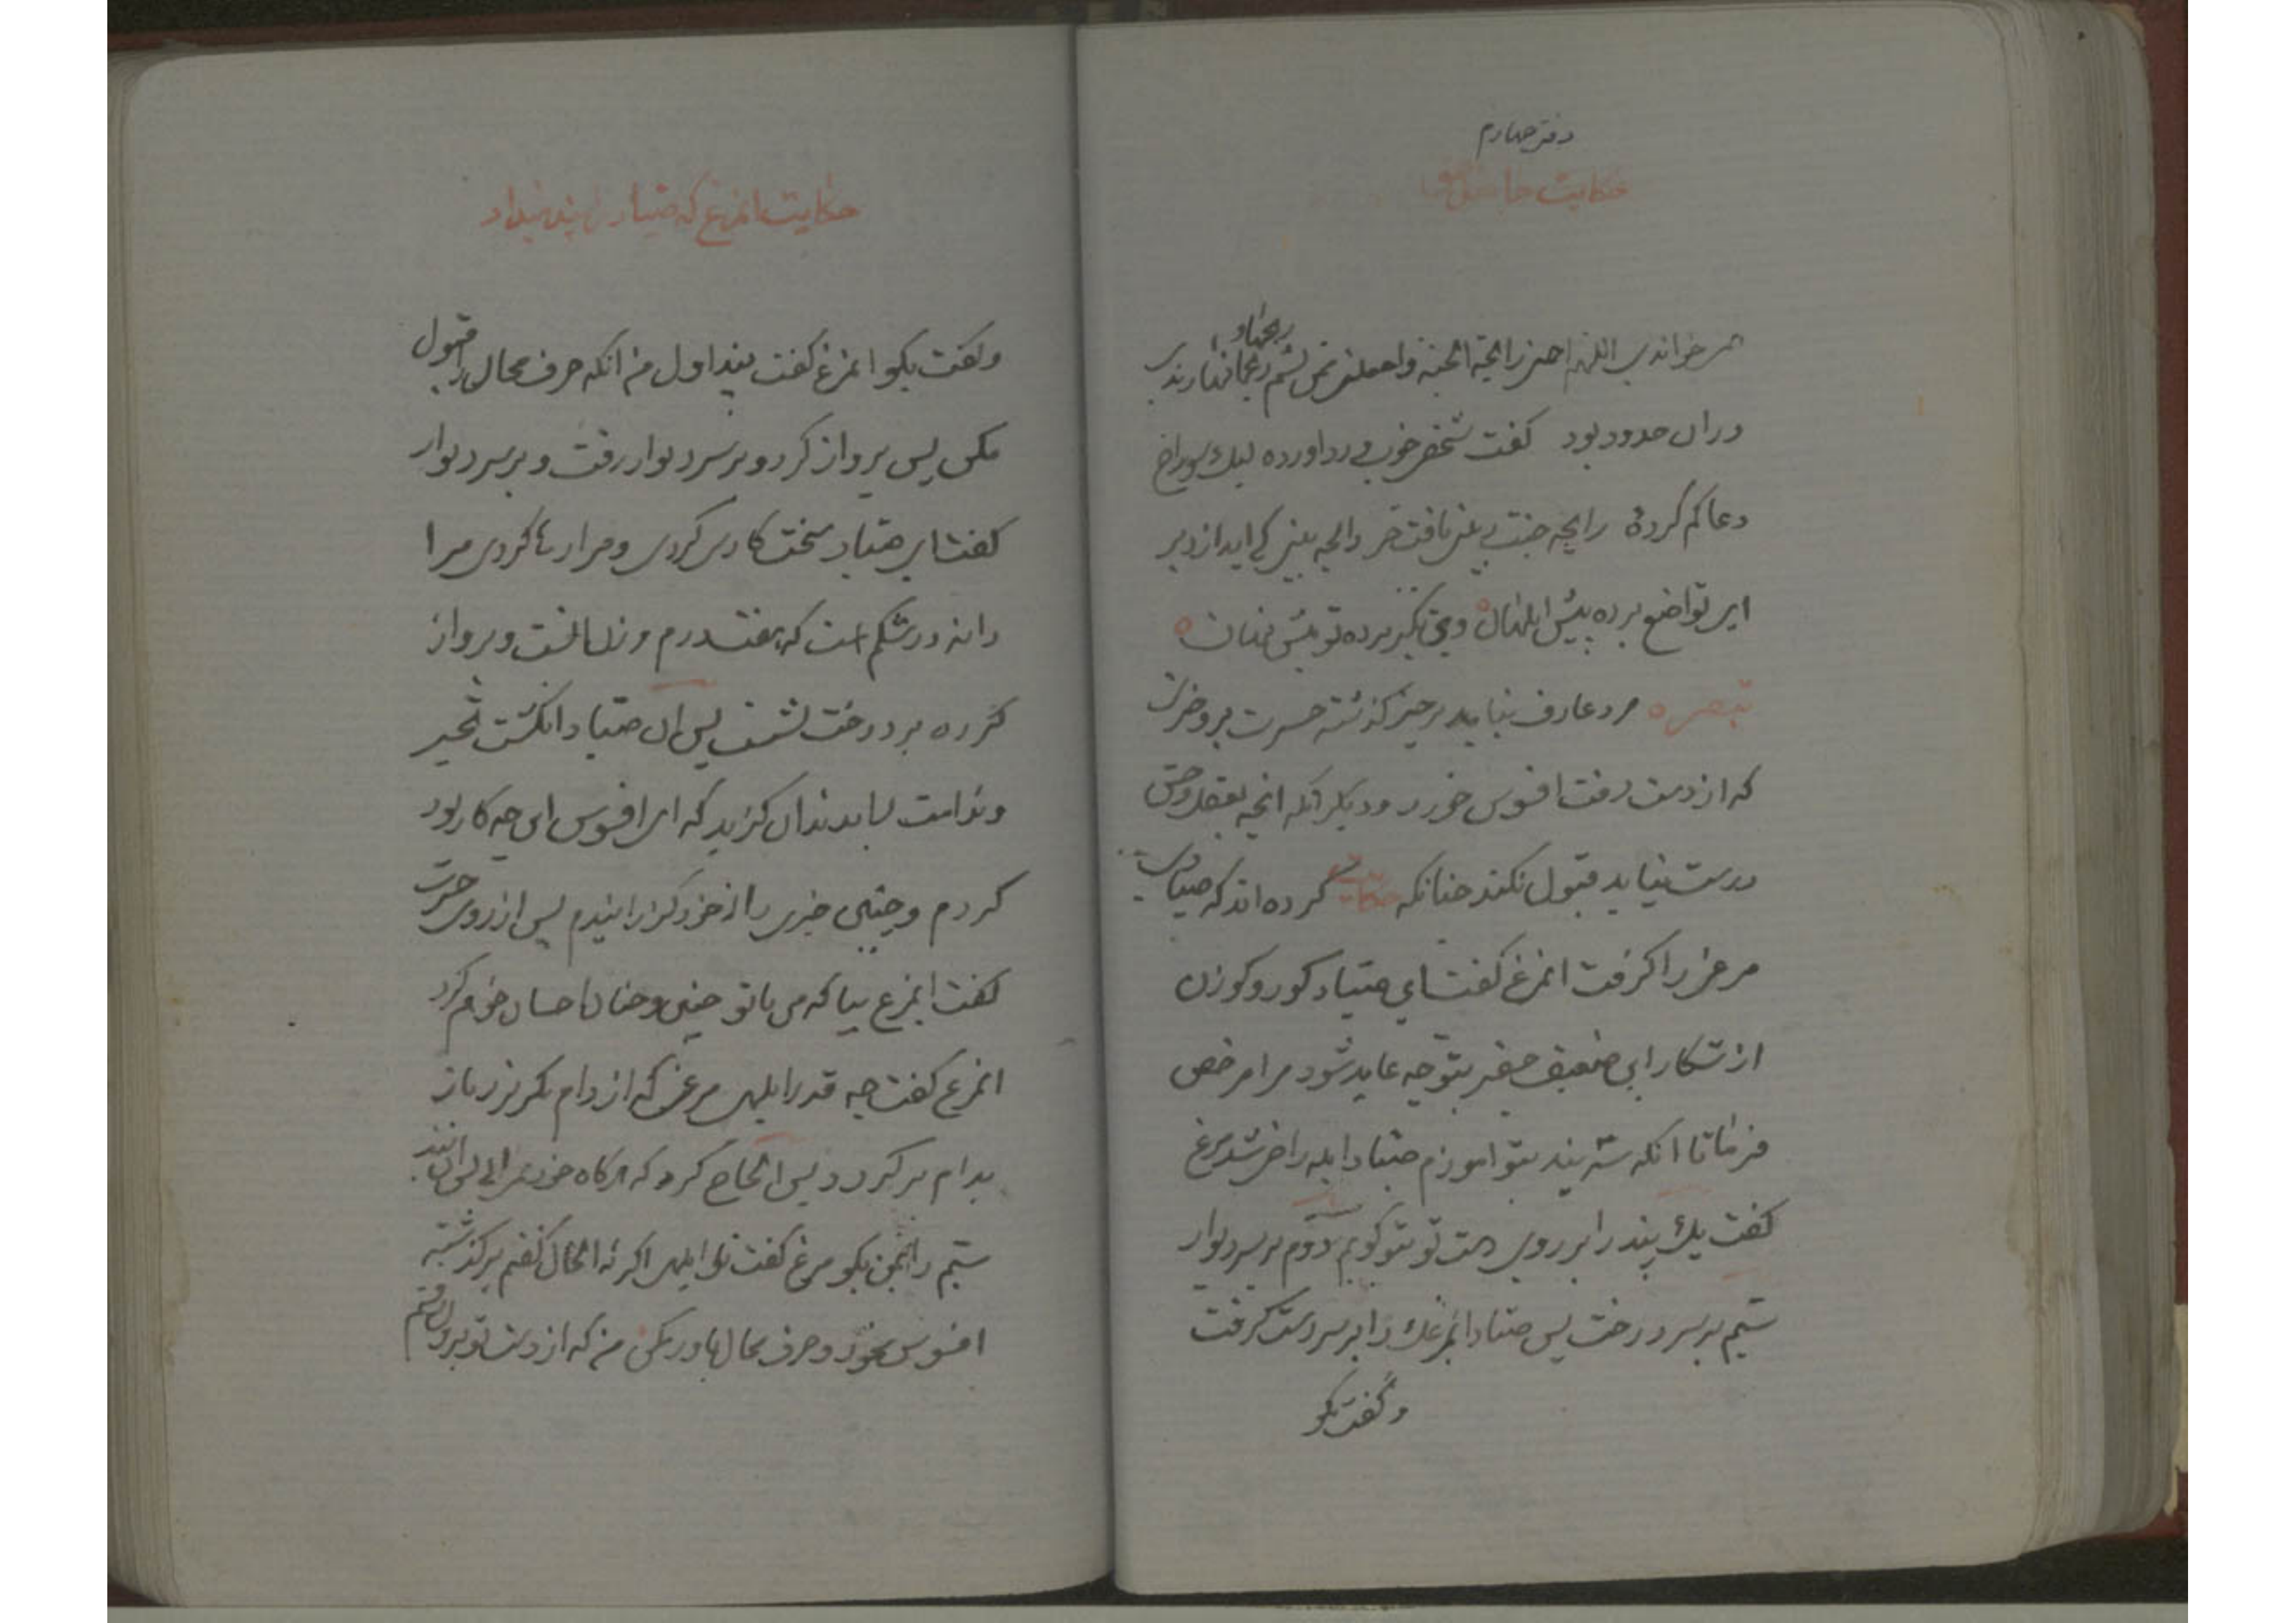 دفتر چهارم
حکایت
می خواندی اللهم ارحنی رایحة الجنة واجعلنی ممن یشم ریحها و
دران حدود بود گفت شخصی خوب ورد اورده لیک سوراخ
دعا کم کرده رایحه جنت بینی یافت حر رایحه بینی کی اید از دبر
ای تواضع برده پیش ابلهان وی تکبر برده تو پیش شهان
تبصره مرد عارف نباید بر چیز گذشته حسرت برد و هرچه
که از دست رفت افسوس خورد و دیگر انکه انچه بعقل وحق
درست نیاید قبول نکند چنانکه حکایت کرده اند که صیادی
مرغی را گرفت انمرغ گفت ای صیاد کور و کوزن
از شکار این ضعیف حقیر بتو چه عاید شود مرا مرخص
فرما تا انکه سه پند بتو اموزم صیاد ابله راضی شد مرغ
گفت یک پند را بر روی دست تو بتو کویم دوم بر سر دیوار
سیم بر سر درخت پس صیاد انمرغک را بر سر دست گرفت
و گفت بکو
حکایت انمرغ که صیاد را پند میداد
و گفت بکو انمرغ گفت پند اول من انکه حرف محال را قبول
مکن پس پرواز کرد و بر سر دیوار رفت و بر سر دیوار
گفت ای صیاد سخت کاری کردی و مرا رها کردی مرا
دانه در شکم است که هفتد درم وزن داشت و پرواز
کرده بر درخت نشست پس ان صیاد انکشت تحیر
و ندامت بدندان کزید که ای افسوس این چه کار بود
کردم و چنین چیزی را از خود کذرانیدم پس از روی حسرت
گفت ایمرغ بیا که من با تو چنین و چنان احسان خواهم کرد
انمرغ گفت چه قدر ابلهی مرغی که از دام بکریزد باز
بدام بر کردد پس الحاح کرد که هرکاه خودت نمی ائی پس ان پند
سیم را بمن بکو مرغ گفت تو ابلهی اکر نه الحال گفتم بر کذشته
افسوس مخور و حرف محال باور مکن من که از دست تو بیرون رفتم